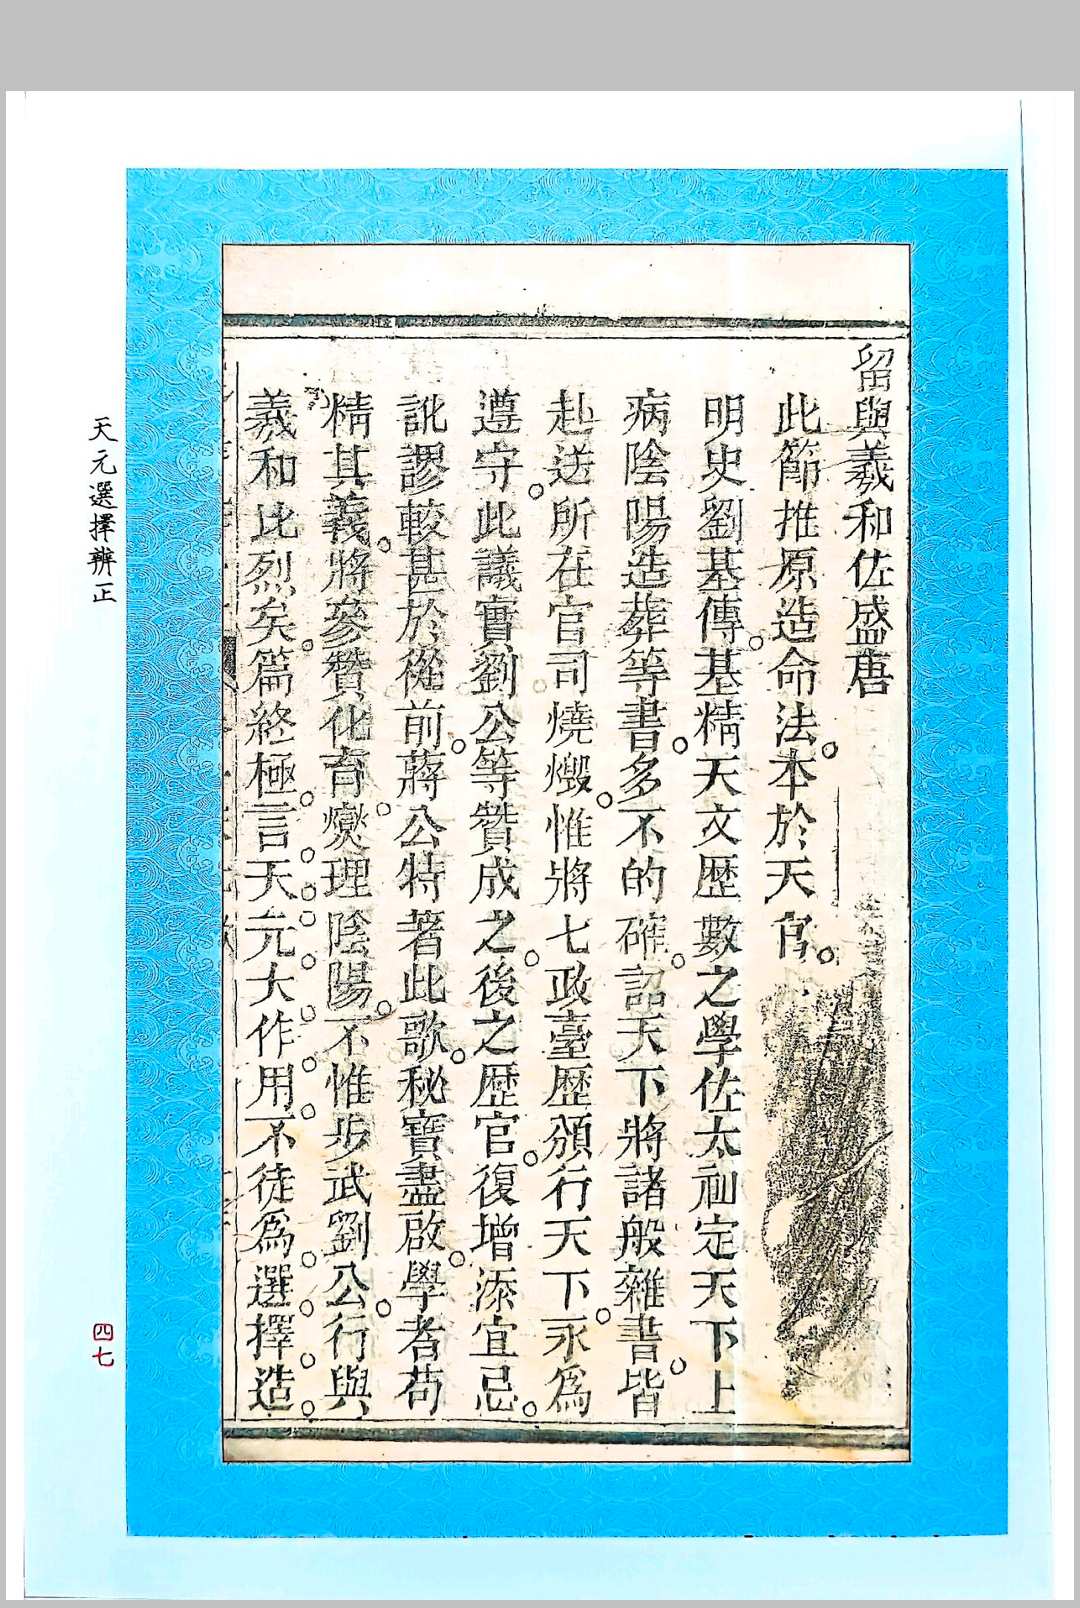 留與羲和佐盛唐
此節推原造命法本於天官
明史劉基傳基精天文歷數之學佐太祖定天下上
病陰陽造葬等書多不的確詔天下將諸般雜書皆
赴送所在官司燒燬惟將七政臺歷頒行天下永為
遵守此議實劉公等贊成之後之歷官復增添宜忌
訛謬較甚於從前蔣公特著此歌秘寶盡啟學者苟
精其義將參贊化育燮理陰陽不惟步武劉公行與
羲和比烈矣篇終極言天元大作用不徒為選擇造
天元選擇辨正
四七